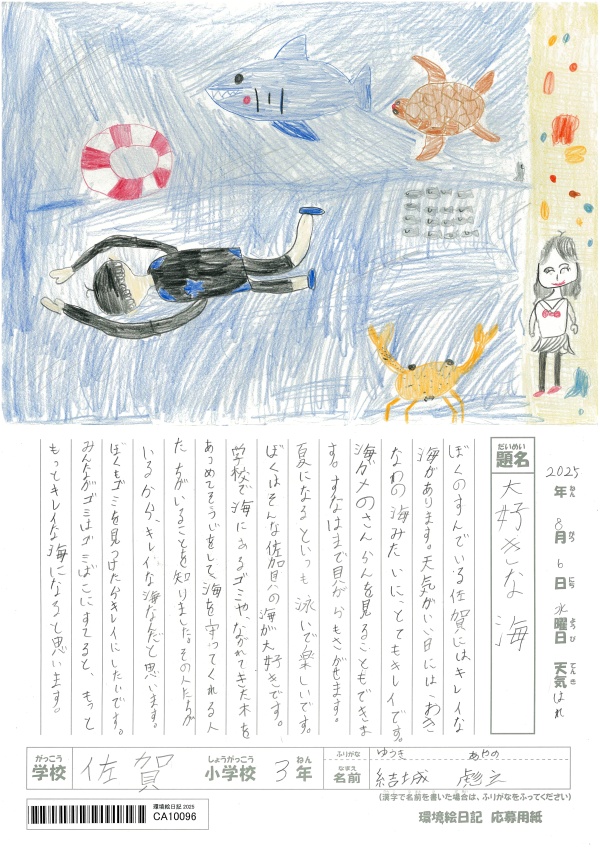 2025年8月6日水曜日 天気はれ
ねん がつ にち ようび てんき
だいめい
題名 大好きな海
ぼくのすんでいる佐賀にはキレイな
海があります。天気がいい日には、おき
なわの海みたいに、とてもキレイです。
海ガメのさんらんを見ることもできま
す。すなはまで貝がらもさがせます。
夏になるといつも泳いで楽しいです。
ぼくはそんな佐賀の海が大好きです。
学校で海にあるゴミや、ながれてきた木を
あつめてそうじをして、海を守ってくれる人
たちがいることを知りました。その人たちが
いるから、キレイな海なんだと思います。
ぼくもゴミを見つけたらキレイにしたいです。
みんながゴミはゴミばこにすてると、もっと
もっとキレイな海になると思います。
がっこう しょうがっこう ねん
学校 佐賀 小学校 3年
ふりがな ゆうき あやの
なまえ
名前 結城
(漢字で名前を書いた場合は、ふりがなをふってください)
環境絵日記 2025
CA10096
環境絵日記 応募用紙